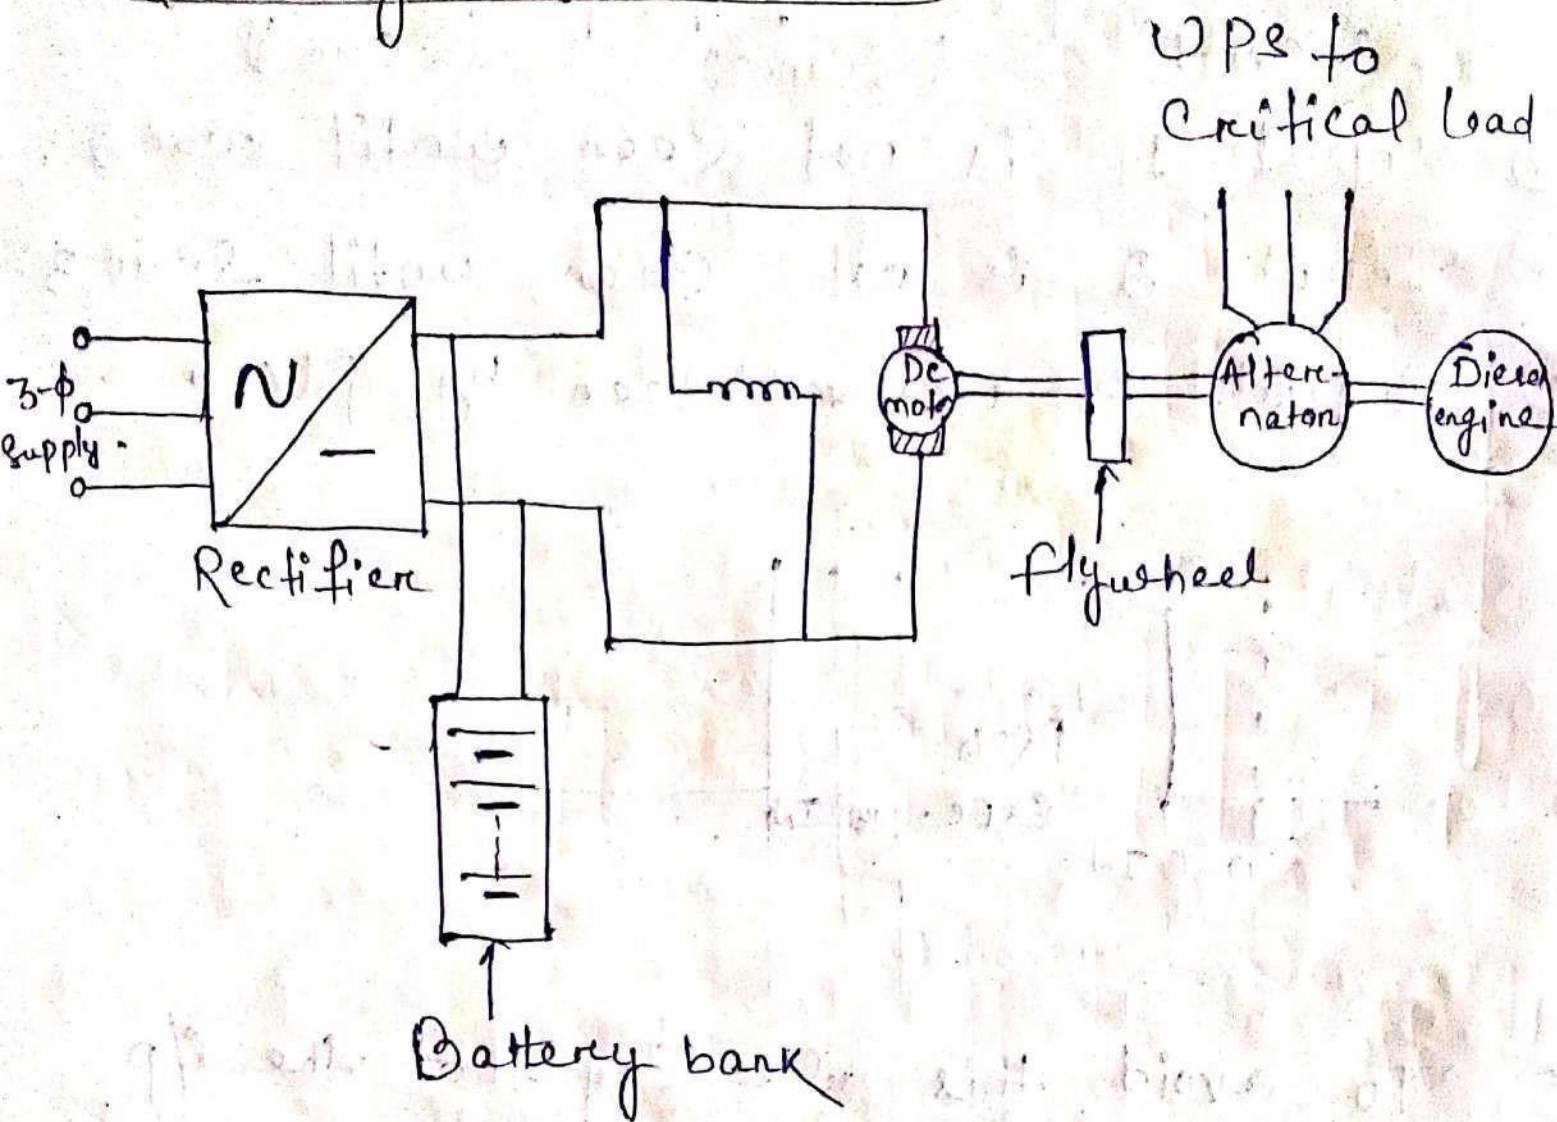 UPS to
Critical load
3-ϕ
supply.
~
—
Rectifier
Dc
motor
Alter-
nator
Diesel
engine
flywheel
Battery bank